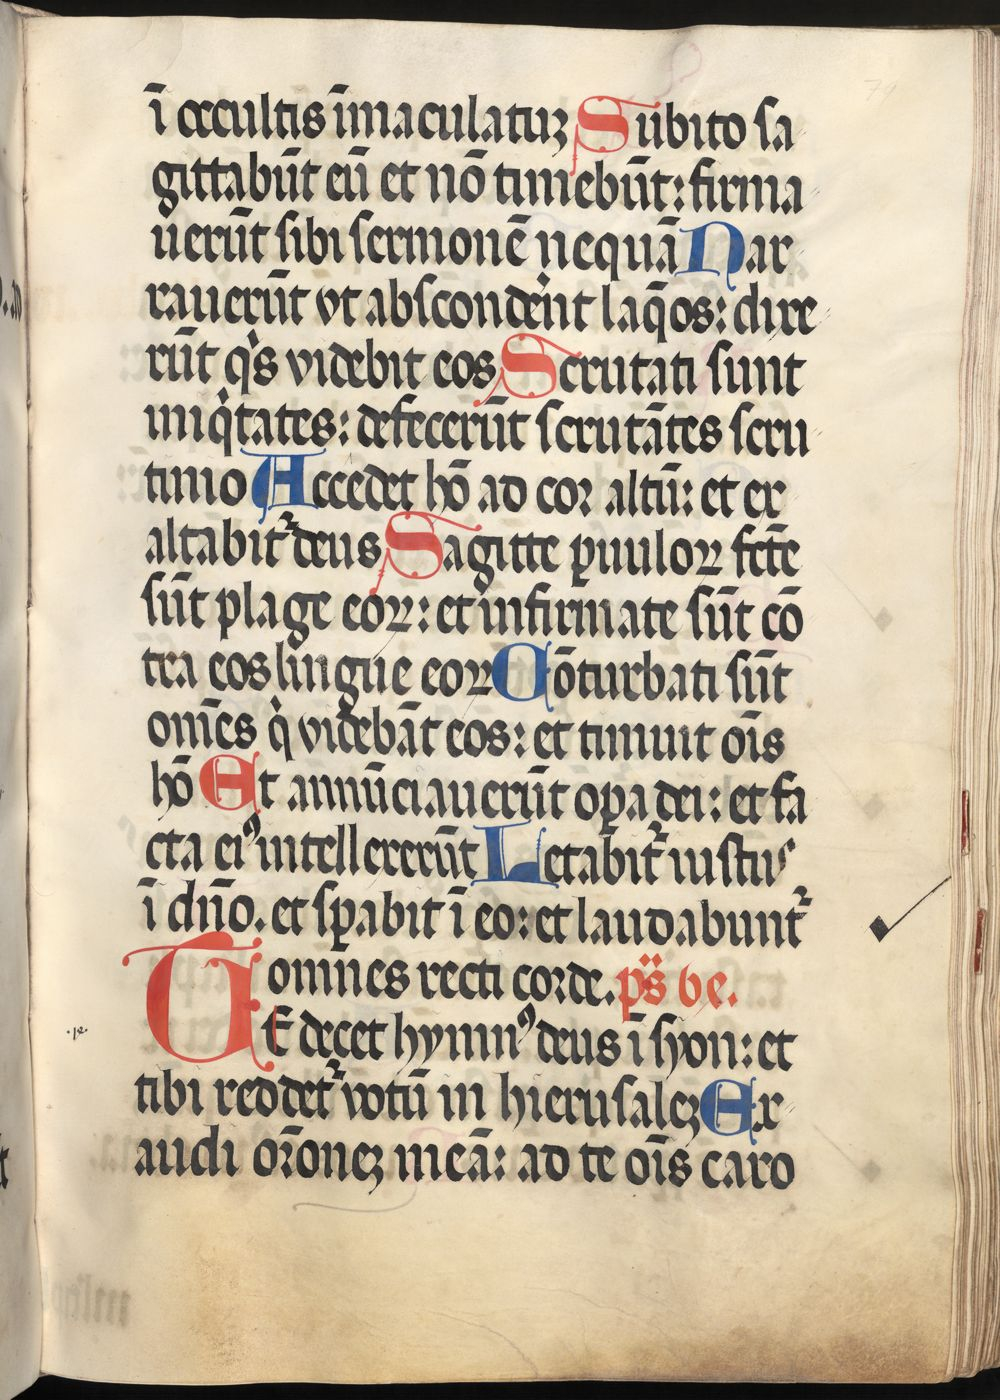 ī occultis īmaculatuꝫ Subito sa
gittabūt eū et nō timebūt: firma
uerūt sibi sermonē nequā Nar
rauerūt vt absconderint laq̄os: dixe
rūt qͥs videbit eos Scrutati sunt
iniqͥtates: defecerūt scrutātes scru
tinio Accedet hō ad cor altū: et ex
altabit᷑ deus Sagitte ꝑuuloꝝ fct̄e
sūt plage eoꝝ: et infirmate sūt cō
tra eos lingue eoꝝ Cōturbati sūt
oms̄ qͥ videbāt eos: et timuit oīs
hō Et annūciauerūt oꝑa dei: et fa
cta eiꝰ intellexerūt Letabit᷑ iustus
ī dn̄o. et sꝑabit ī eo: et laudabunt᷑
omnes recti corde. ps̄ be.
TE decet hymnꝰ deus ī syon: et
tibi reddet᷑ votū in hierusaleꝫ Ex
audi or̄oneꝫ meā: ad te oīs caro